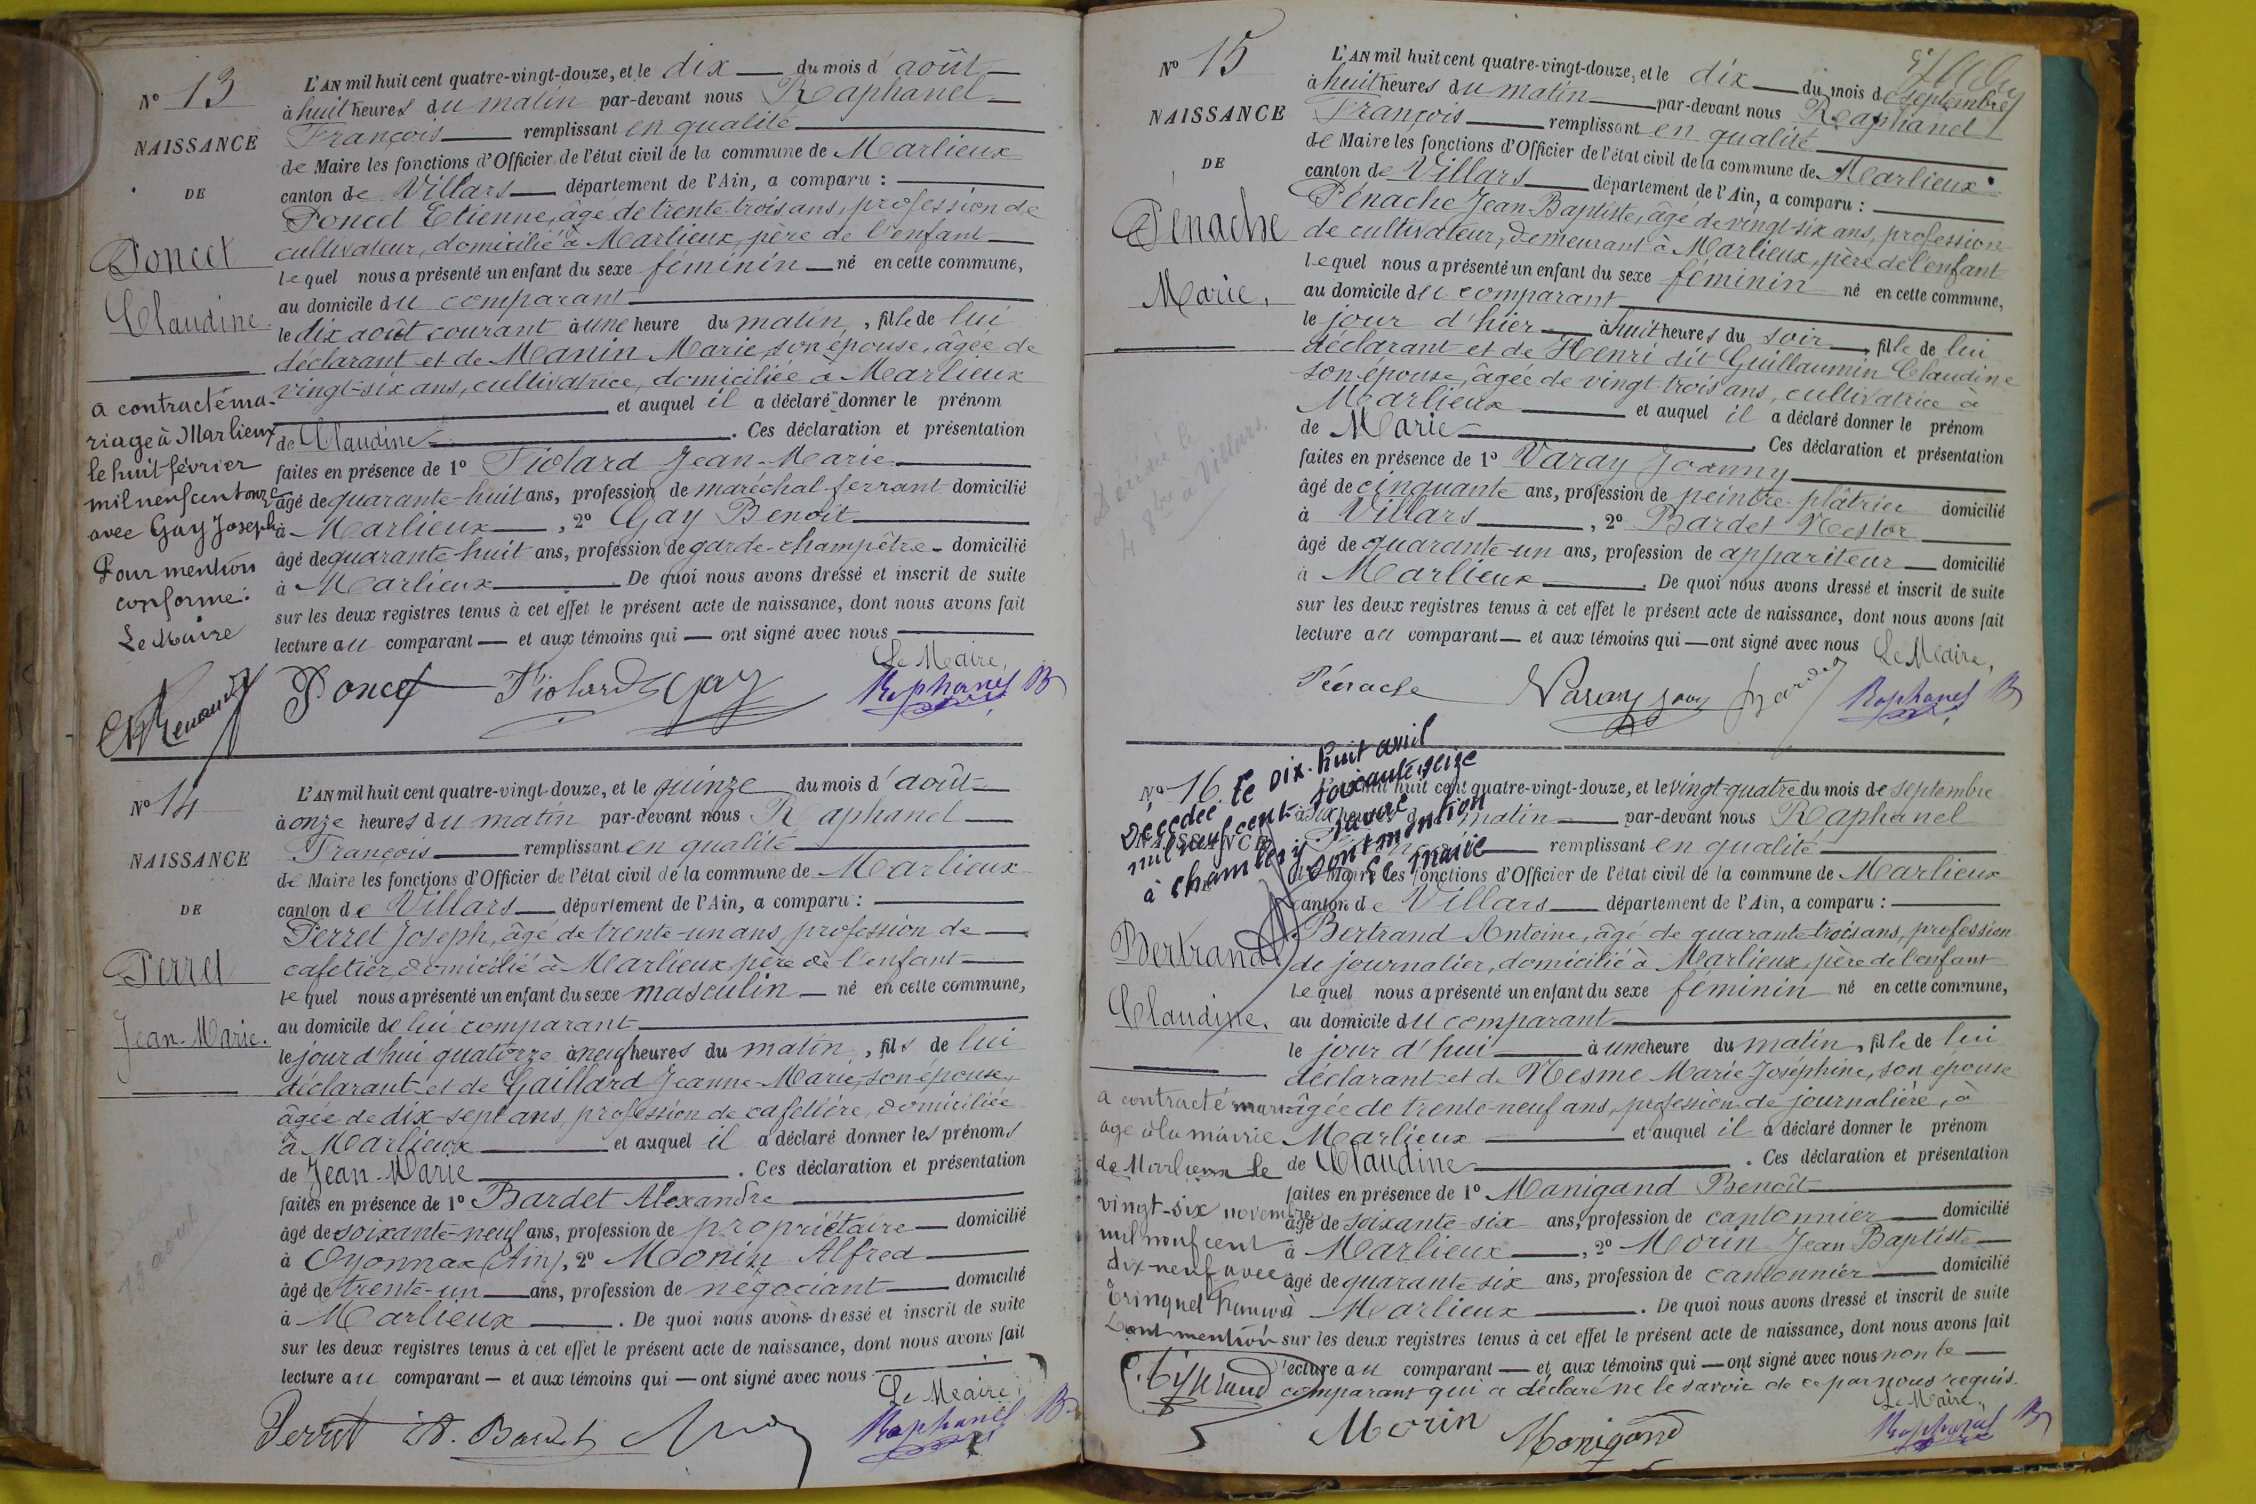 N° 13
NAISSANCE
DE
Poncet
Claudine.
a contracté ma-
riage à Marlieux
le huit février
mil neuf cent onze
avec Gay Joseph
Pour mention
conforme:
Le Maire
L'AN mil huit cent quatre-vingt-douze, et le dix du mois d'août
à huit heures du matin par-devant nous Raphanel
François remplissant en qualité
de Maire les fonctions d'Officier de l'état civil de la commune de Marlieux
canton de Villars département de l'Ain, a comparu :
Poncet Etienne, âgé de trente-trois ans, profession de
cultivateur, domicilié à Marlieux, père de l'enfant
lequel nous a présenté un enfant du sexe féminin né en cette commune,
au domicile du comparant
le dix août courant à une heure du matin, fille de lui
déclarant et de Manin Marie, son épouse, âgée de
vingt-six ans, cultivatrice, domiciliée à Marlieux
et auquel il a déclaré donner le prénom
de Claudine. Ces déclaration et présentation
faites en présence de 1° Piolard Jean-Marie
âgé de quarante-huit ans, profession de maréchal-ferrant domicilié
à Marlieux, 2° Gay Benoît
âgé de quarante-huit ans, profession de garde-champêtre domicilié
à Marlieux. De quoi nous avons dressé et inscrit de suite
sur les deux registres tenus à cet effet le présent acte de naissance, dont nous avons fait
lecture au comparant et aux témoins qui ont signé avec nous
Le Maire,
Poncet Piolard Gay Raphanel
N° 14
NAISSANCE
DE
Perret
Jean-Marie.
L'AN mil huit cent quatre-vingt-douze, et le quinze du mois d'août
à onze heures du matin par-devant nous Raphanel
François remplissant en qualité
de Maire les fonctions d'Officier de l'état civil de la commune de Marlieux
canton de Villars département de l'Ain, a comparu :
Perret Joseph, âgé de trente-un ans, profession de
cafetier, domicilié à Marlieux, père de l'enfant
lequel nous a présenté un enfant du sexe masculin né en cette commune,
au domicile de lui comparant
le jour d'hui quatorze à neuf heures du matin, fils de lui
déclarant et de Gaillard Jeanne-Marie, son épouse,
âgée de dix-sept ans, profession de cafetière, domiciliée
à Marlieux et auquel il a déclaré donner les prénoms
de Jean-Marie. Ces déclaration et présentation
faites en présence de 1° Bardet Alexandre
âgé de soixante-neuf ans, profession de propriétaire domicilié
à Oyonnax (Ain), 2° Monin Alfred
âgé de trente-un ans, profession de négociant domicilié
à Marlieux. De quoi nous avons dressé et inscrit de suite
sur les deux registres tenus à cet effet le présent acte de naissance, dont nous avons fait
lecture au comparant et aux témoins qui ont signé avec nous
Le Maire,
Perret A. Bardet Raphanel
N° 15
NAISSANCE
DE
Pénache
Marie.
Décédée le
à Villars.
L'AN mil huit cent quatre-vingt-douze, et le dix du mois de septembre
à huit heures du matin par-devant nous Raphanel
François remplissant en qualité
de Maire les fonctions d'Officier de l'état civil de la commune de Marlieux
canton de Villars département de l'Ain, a comparu :
Pénache Jean-Baptiste, âgé de vingt-six ans, profession
de cultivateur, demeurant à Marlieux, père de l'enfant
lequel nous a présenté un enfant du sexe féminin né en cette commune,
au domicile du comparant
le jour d'hier à huit heures du soir, fille de lui
déclarant et de Henri dit Guillaumin Claudine
son épouse, âgée de vingt-trois ans, cultivatrice à
Marlieux et auquel il a déclaré donner le prénom
de Marie. Ces déclaration et présentation
faites en présence de 1° Varay Joanny
âgé de cinquante ans, profession de peintre-plâtrier domicilié
à Villars, 2° Bardet Nestor
âgé de quarante-un ans, profession de appariteur domicilié
à Marlieux. De quoi nous avons dressé et inscrit de suite
sur les deux registres tenus à cet effet le présent acte de naissance, dont nous avons fait
lecture au comparant et aux témoins qui ont signé avec nous Le Maire,
Pénache Varay Bardet Raphanel
N° 16
Décédée le dix-huit avril
mil neuf cent soixante seize
à Chambéry Savoie
dont mention
Le Maire
NAISSANCE
Bertrand
Claudine.
a contracté mari
age à la mairie
de Marlieux le
vingt-six novembre
mil neuf cent
dix-neuf avec
Dont mention
mil huit cent quatre-vingt-douze, et le vingt-quatre du mois de septembre
matin par-devant nous Raphanel
remplissant en qualité
de Maire les fonctions d'Officier de l'état civil de la commune de Marlieux
canton de Villars département de l'Ain, a comparu :
Bertrand Antoine, âgé de quarante-trois ans, profession
de journalier, domicilié à Marlieux, père de l'enfant
lequel nous a présenté un enfant du sexe féminin né en cette commune,
au domicile du comparant
le jour d'hui à une heure du matin, fille de lui
déclarant et de Nesme Marie Joséphine, son épouse
âgée de trente-neuf ans, profession de journalière, à
Marlieux et auquel il a déclaré donner le prénom
de Claudine. Ces déclaration et présentation
faites en présence de 1° Manigand Benoît
âgé de soixante-six ans, profession de cantonnier domicilié
à Marlieux, 2° Morin Jean Baptiste
âgé de quarante-six ans, profession de cantonnier domicilié
à Marlieux. De quoi nous avons dressé et inscrit de suite
sur les deux registres tenus à cet effet le présent acte de naissance, dont nous avons fait
lecture au comparant et aux témoins qui ont signé avec nous non le
comparant qui a déclaré ne le savoir de ce par nous requis.
Le Maire,
Morin Manigand Raphanel